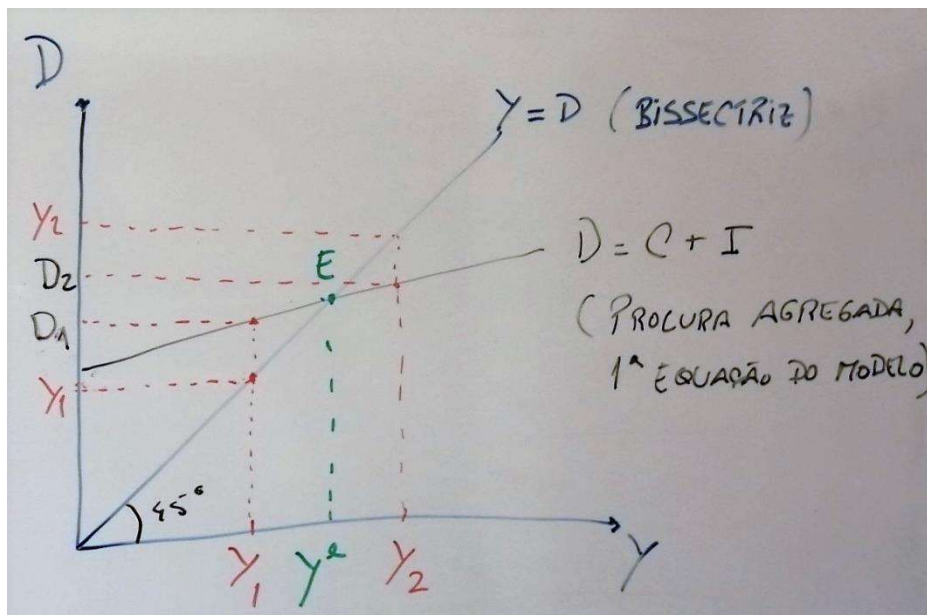 D
Y = D (BISSECTRIZ)
Y2
D2
E
D = C + I
D1
(PROCURA AGREGADA,
Y1
1ª EQUAÇÃO DO MODELO)
45°
Y1
Ye
Y2
Y